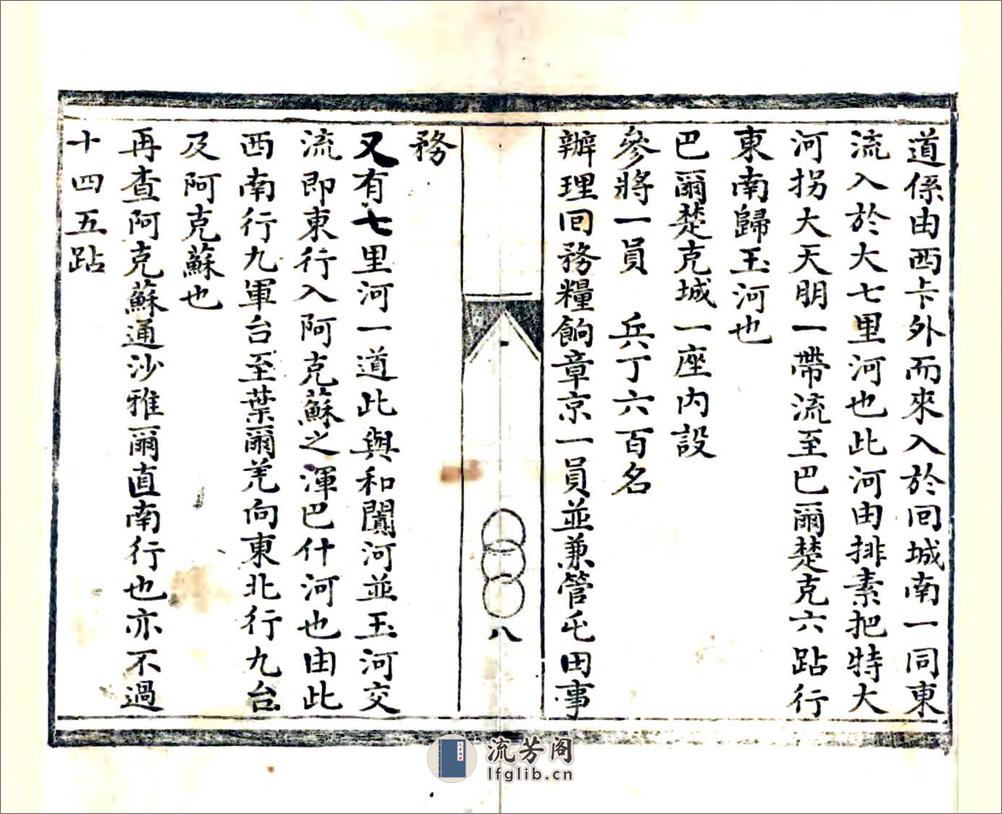 道係由西卡外而來入於回城南一同東
流入於大七里河也此河由排素把特大
河拐大天朋一帶流至巴爾楚克六跕行
東南歸玉河也
巴爾楚克城一座內設
參將一員　兵丁六百名
辦理回務糧餉章京一員並兼管屯田事
八
務
又有七里河一道此與和闐河並玉河交
流即東行入阿克蘇之渾巴什河也由此
西南行九軍台至葉爾羌向東北行九台
及阿克蘇也
再查阿克蘇通沙雅爾直南行也亦不過
十四五跕
流芳阁
lfglib.cn